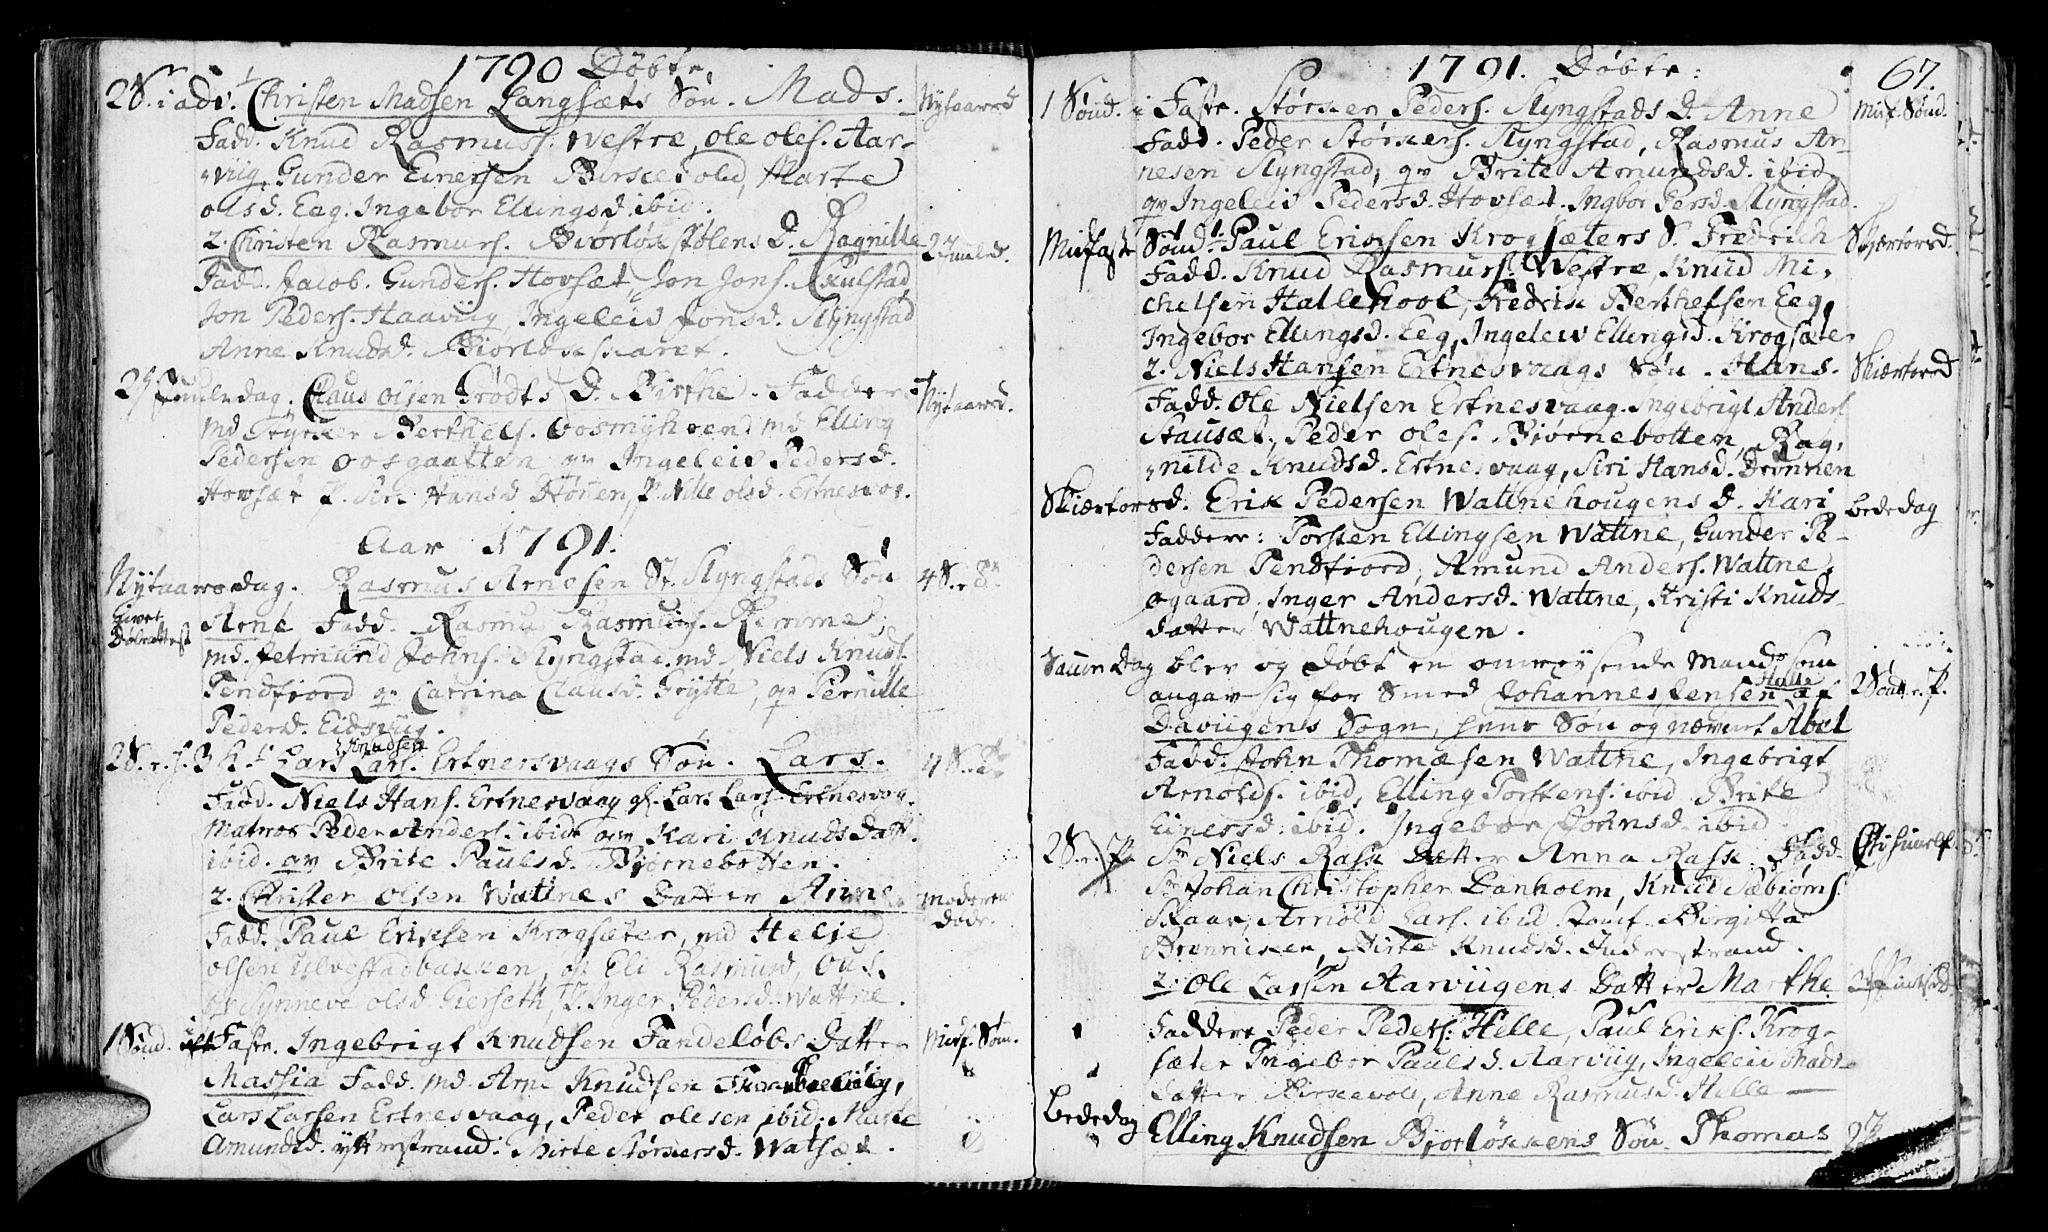 1790 Døbte
2 S. i adv. 1 Christen Madsen Langsæts Søn. Mads. Nytaarsd
Fadd. Knud Rasmuss. Westre, Ole Oles. Aar-
viig, Gunder Einersen Birkevold, Marte
Olsd. Eeg. Ingebor Ellingsd. ibid.
2. Christen Rasmuss. Biørløkstølens D. Ragnille 2 Juuled.
Fadd. Jacob Gunders. Hovsæt, Jon Jons. Skulstad,
Jon Peders. Haaviig, Ingeleiv Jonsd. Slyngstad
Anne Knudsd. Biørløkskaret.
2 Juuledag. Claus Olsen Frødts D. Birthe. Faddere Nytaarsd.
md Berthels. md Elling
Pedersen qv Ingeleiv Pedersd.
Hovsæt P. Siri Hansd. P. Nille Olsd. Ertnesvog.
Aar 1791.
Nytaarsdag. Rasmus Arnesen St. Slyngstads Søn 4 S. e
Arne Fadd. Rasmus Rasmuss. Remme,
md. Johns. Slyngstad. md Niels Knuds.
Tendfiord qv Catrina Clausd. Grytte, qv Pernille
Pedersd. Eidsviig.
Knudsen
2 S. e. Lars Lars. Ertnesvaags Søn. Lars. 4 S.
Fadd. Niels Hans. Ertnesvaag Lars Lars. Ertnesvog.
Matros Peder Anders. ibid qv Kari Knudsdatt.
ibid. qv Brite Paulsd. Biørnebotten.
2. Christen Olsen Watnes Datter Anne Moderen
døde.
Fadd. Paul Eriksen Krogsæter, md Helje
Olsen Ulvestadbakken, qv Eli Rasmusd,
qv Synneve Olsd Gierseth, P. Inger Pedersd. Wattne.
1 Sønd. i Faste. Ingebrigt Knudsen Tandeløbs Datter Mitf. Søn.
Massia Fadd. md. Arne Knudsen
Lars Larsen Ertnesvaag, Peder Olesen ibid. Marte
Amundsd. yttrestrand. Birte Størkersd. Watsæt.

1791. Døbte: 67.
1 Sønd. i Faste. Størker Peders. Slyngstads D. Anne Mitf. Sønd.
Fadd. Peder Størkers. Slyngstad, Rasmus Ar-
nesen Slyngstad, qv Brite Amundsd. ibid,
qv Ingeleiv Pedersd. Hovsæt. Ingbor Persd. Slyngstad.
Mitfaste Sønd. 1. Paul Eriksen Krogsæters S. Fredrich Skjærtorsd.
Fadd. Knud Rasmuss. Westre, Knud Mi-
chelsen Hallekool, Fredrik Berthelsen Eeg,
Ingebor Ellingsd. Eeg, Ingeleiv Ellingsd. Krogsæter
2. Niels Hansen Ertnesvaags Søn. Hans. Skiærtorsd
Fadd. Ole Nielsen Ertnesvaag. Ingebrigt Anders.
Stausæt, Peder Oles. Biørnebotten, Rag-
nilde Knudsd. Ertnesvaag, Siri Hansd. Drønnen
Skiærtorsd. Erik Pedersen Wattnehougens D. Kari Bededag
Faddere: Torsten Ellingsen Wattne, Gunder Pe-
dersen Tendfiord, Amund Anders. Wattne-
ogaard, Inger Andersd. Wattne, Kristi Knuds-
datter Wattnehougen.
Samme Dag blev og døbt en omreysende Mands som
angav sig for Smed Johannes Jensen Helle af 2 Sønd. e. P.
Daviigens Sogn, hans Søn og nævnt Abel
Fadd. John Thomæsen Wattne, Ingebrigt
Arnolds. ibid, Elling Torstens. ibid Brite
Einersd. ibid. Ingebor Johnsd. ibid
2 S. e. P. Sr Niels Rask Datter Anna Rask. Fadd.
Sr Johan Christopher Danholm, Knud Sæbiøms.
Skaar, Arnold Lars. ibid Jomf. Birgitta
Brenniken, Birte Knudsd. Inderstrand.
2. Ole Larsen Aarviigens Datter Marthe
Faddere Peder Peders. Helle, Paul Eriks. Krog-
sæter Ingebor Paulsd. Aarviig, Ingeleiv Mads-
datter Birkevold, Anne Rasmusd. Helle
Bededag Elling Knudsen Biørløkkens Søn Thomas